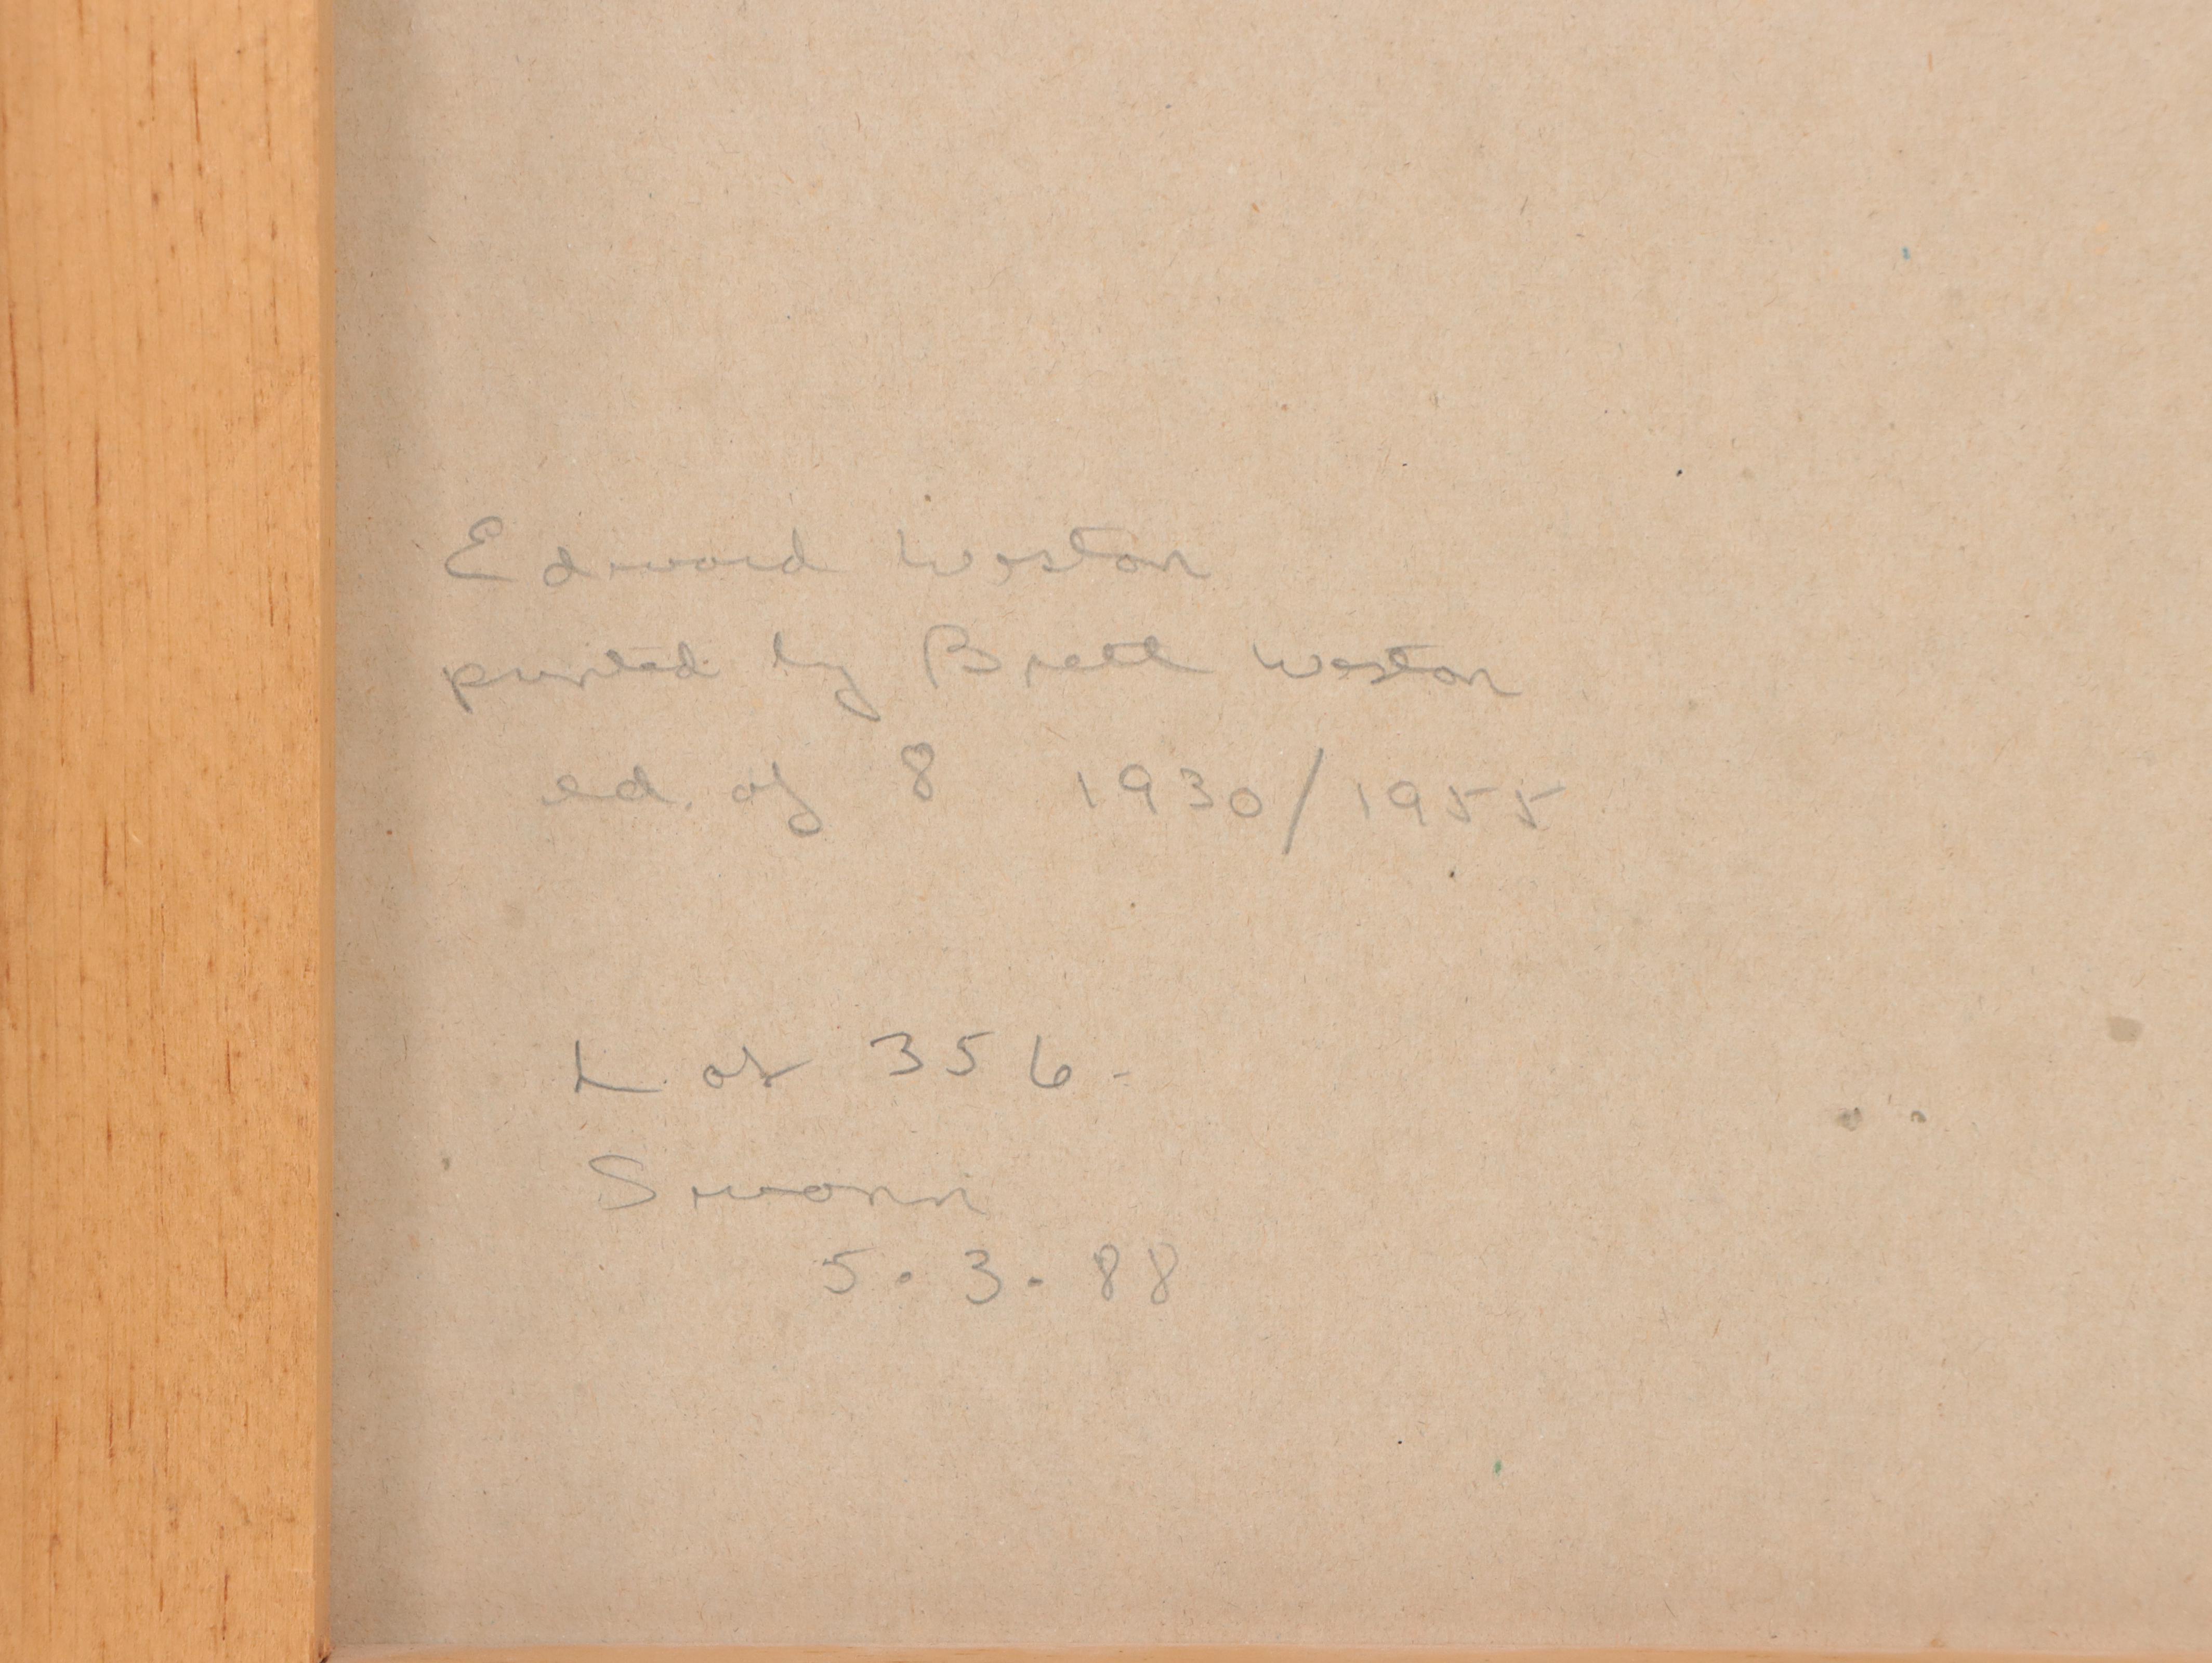 Edward Weston
printed by Brett Weston
ed. of 8 1930/1955
Lot 356-
Swann
5.3.88